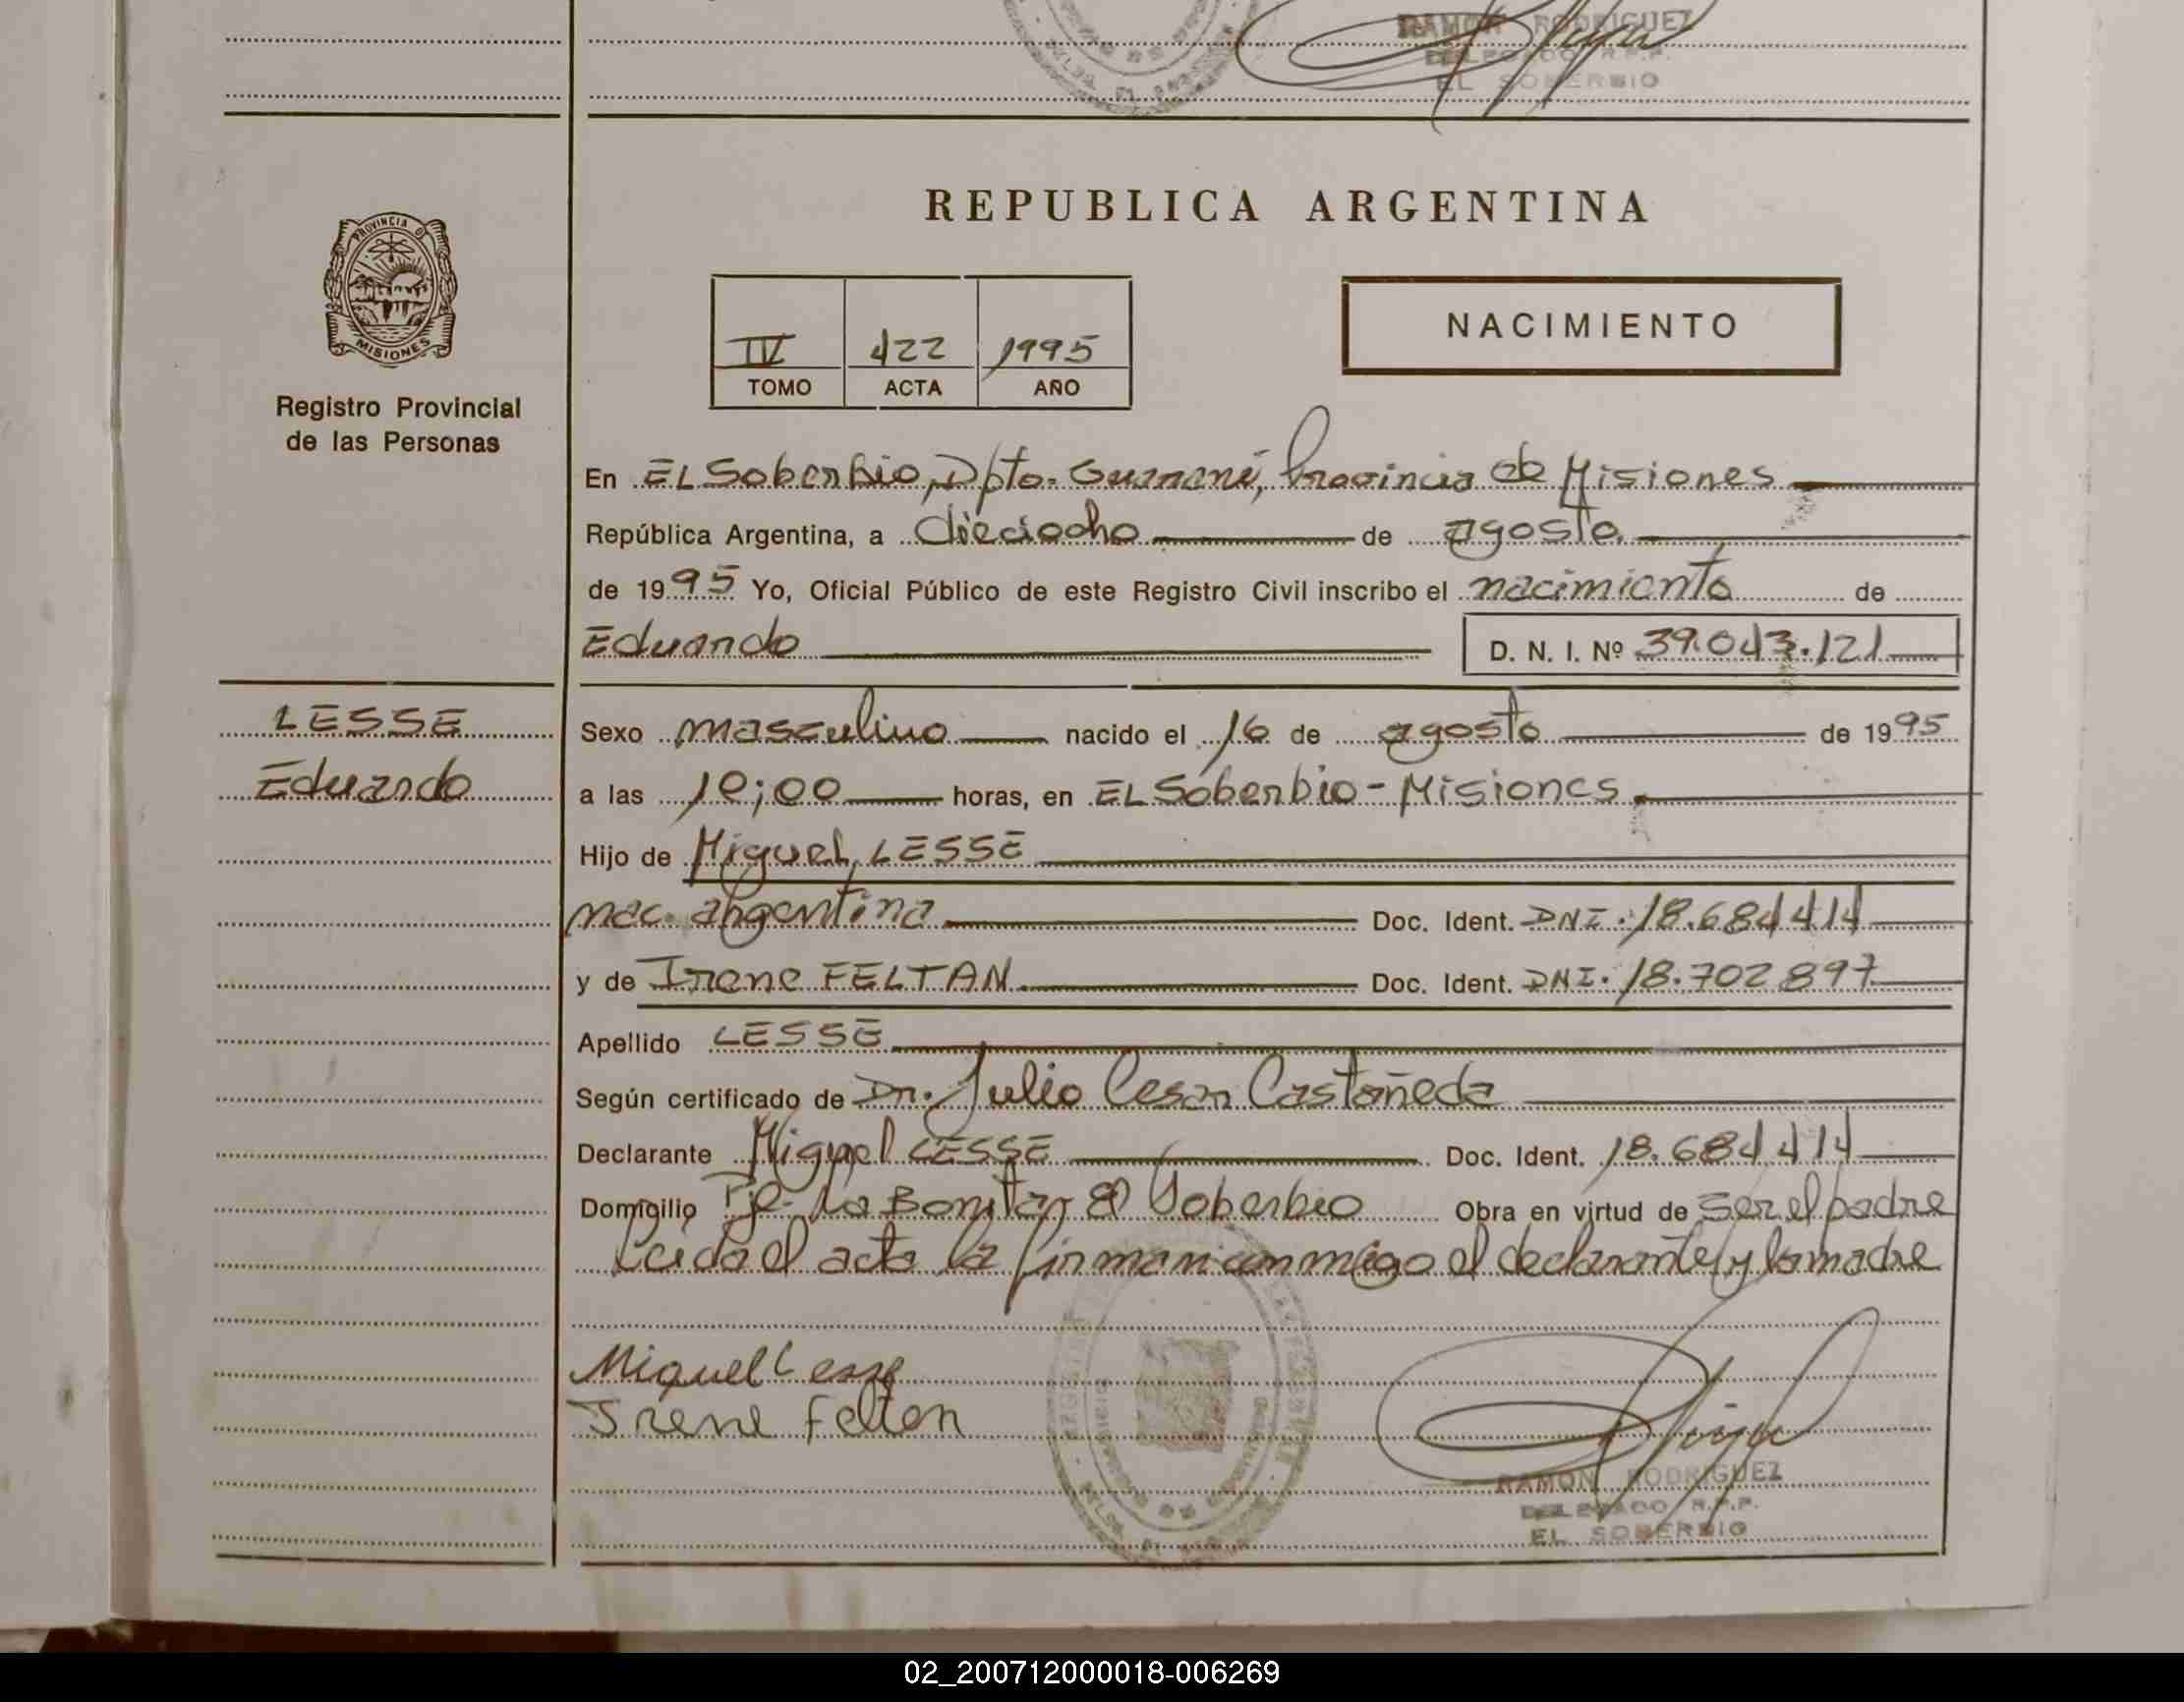 RAMON RODRIGUEZ
DELEGADO R.P.P.
EL SOBERBIO
REPUBLICA ARGENTINA
PROVINCIA DE
MISIONES
Registro Provincial
de las Personas
IV 422 1995
TOMO ACTA AÑO
NACIMIENTO
En EL Soberbio, Dpto. Guarani, Provincia de Misiones
República Argentina, a dieciocho de agosto
de 1995 Yo, Oficial Público de este Registro Civil inscribo el nacimiento de
Eduardo D. N. I. Nº 39.043.121
LESSE
Eduardo
Sexo masculino nacido el 16 de agosto de 1995
a las 10;00 horas, en EL Soberbio - Misiones
Hijo de Miguel LESSE
nac. argentina Doc. Ident. DNI. 18.684414
y de Irene FELTAN Doc. Ident. DNI. 18.702897
Apellido LESSE
Según certificado de Dr. Julio Cesar Castañeda
Declarante Miguel LESSE Doc. Ident. 18.684414
Domicilio Pje. La Bonita El Soberbio Obra en virtud de ser el padre
Leida el acta la firman conmigo el declarante y la madre
Miguel Lesse
Irene Felten
RAMON RODRIGUEZ
DELEGADO R.P.P.
EL SOBERBIO
02_200712000018-006269